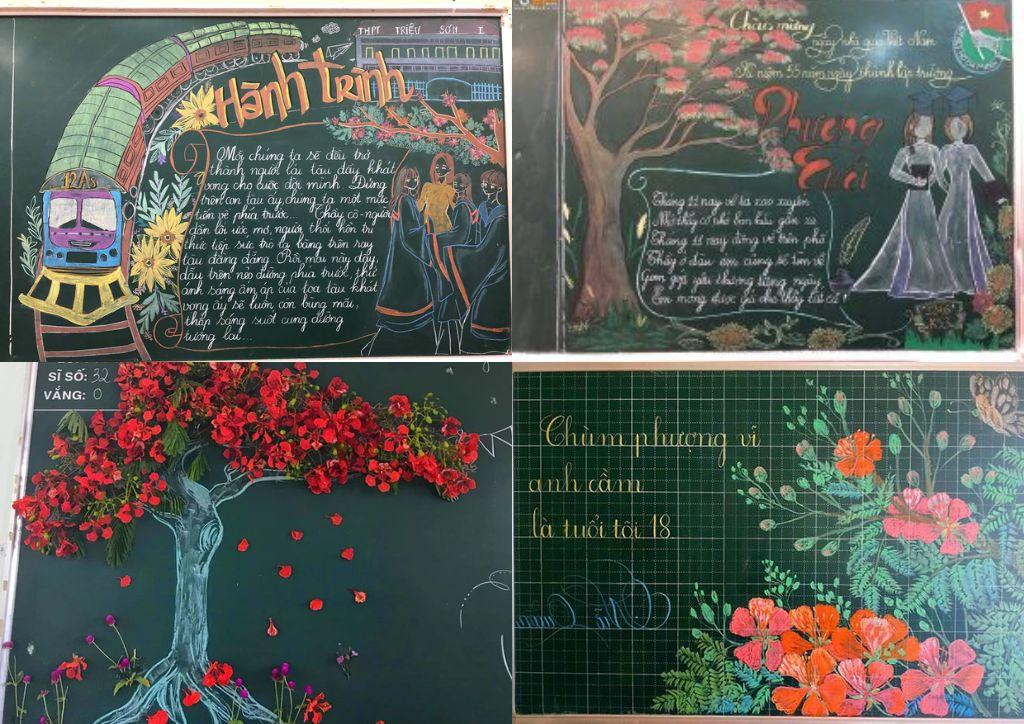 THPT TRIỆU SƠN 1
Hành trình
12A5
Mỗi chúng ta sẽ đều trở
thành người lái tàu đầy khát
vọng cho cuộc đời mình. Đứng
trên con tàu ấy chúng ta một mực
tiến về phía trước... Thầy cô - người
dẫn lối ước mơ, người thổi hồn tri
thức tiếp sức trở la bàng trên ray
tàu đăng đẳng. Rồi mai này đây,
dẫu trên nẻo đường phía trước, thì
ánh sáng ấm áp của tọa tàu khát
vọng ấy sẽ luôn còn bùng mãi,
thắp sáng suốt cung đường
tương lai...
Chào mừng
ngày nhà giáo Việt Nam
Kỉ niệm 55 năm ngày thành lập trường
Phượng
Cuối
Tháng 11 nay về lạ xao xuyến
Tháng 11 nay đông về trên phố
Thầy ở đâu em cũng sẽ tìm về
SĨ SỐ: 32
VẮNG: 0
Chùm phượng vĩ
anh cầm
là tuổi tôi 18